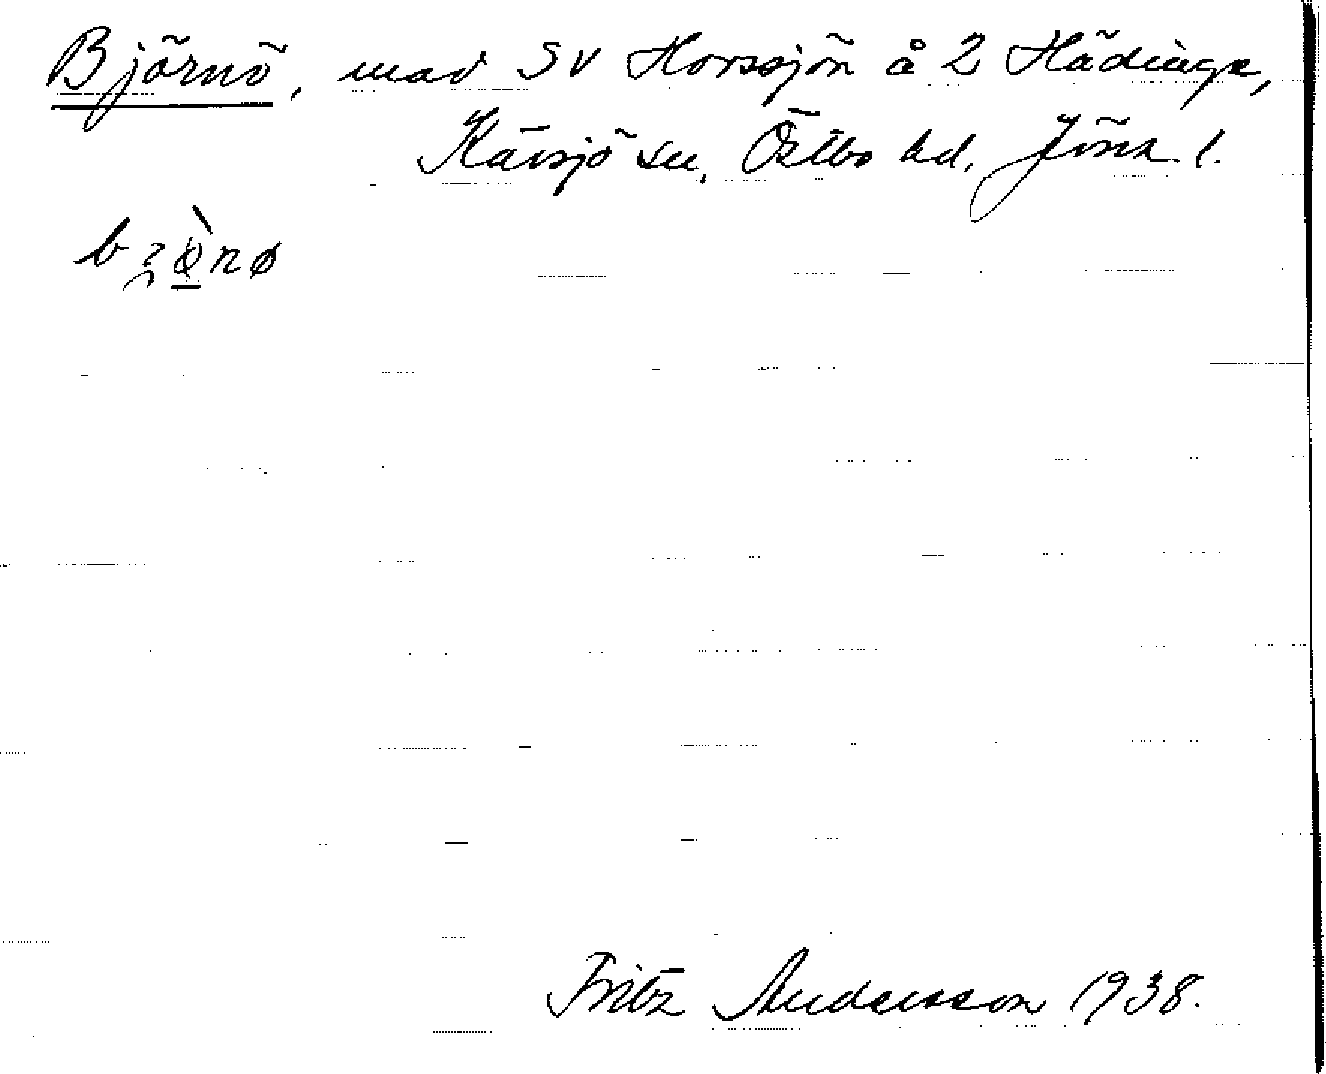 Björnö, mad SV Horssjön å 2 Hädinge,
Kävsjö sn, Östbo hd. Jönk l.
Fritz Andersson 1938.